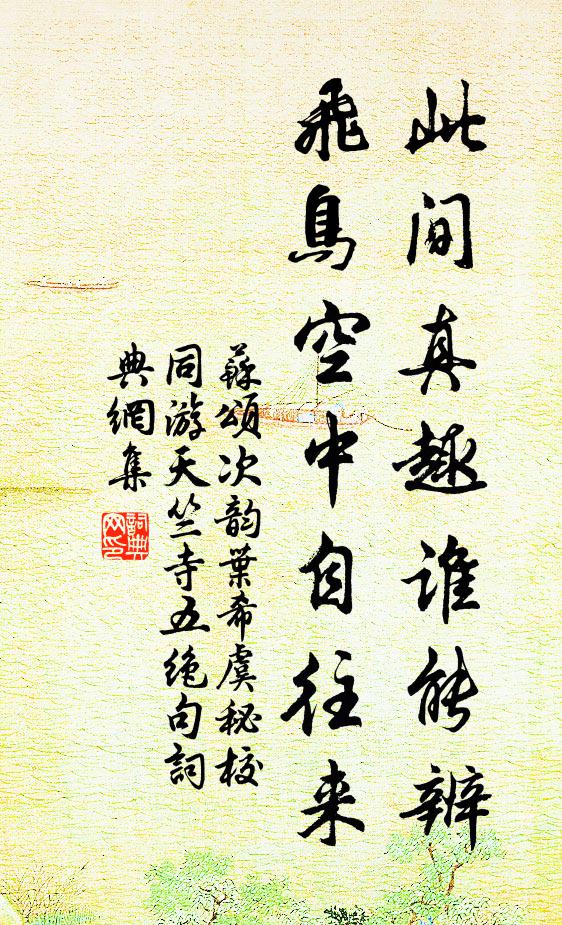 此间真趣谁能辨
飛鳥空中自往来
蘇頌次韵葉希虞秘校
同游天竺寺五绝句詞
典網集
詞典
网印